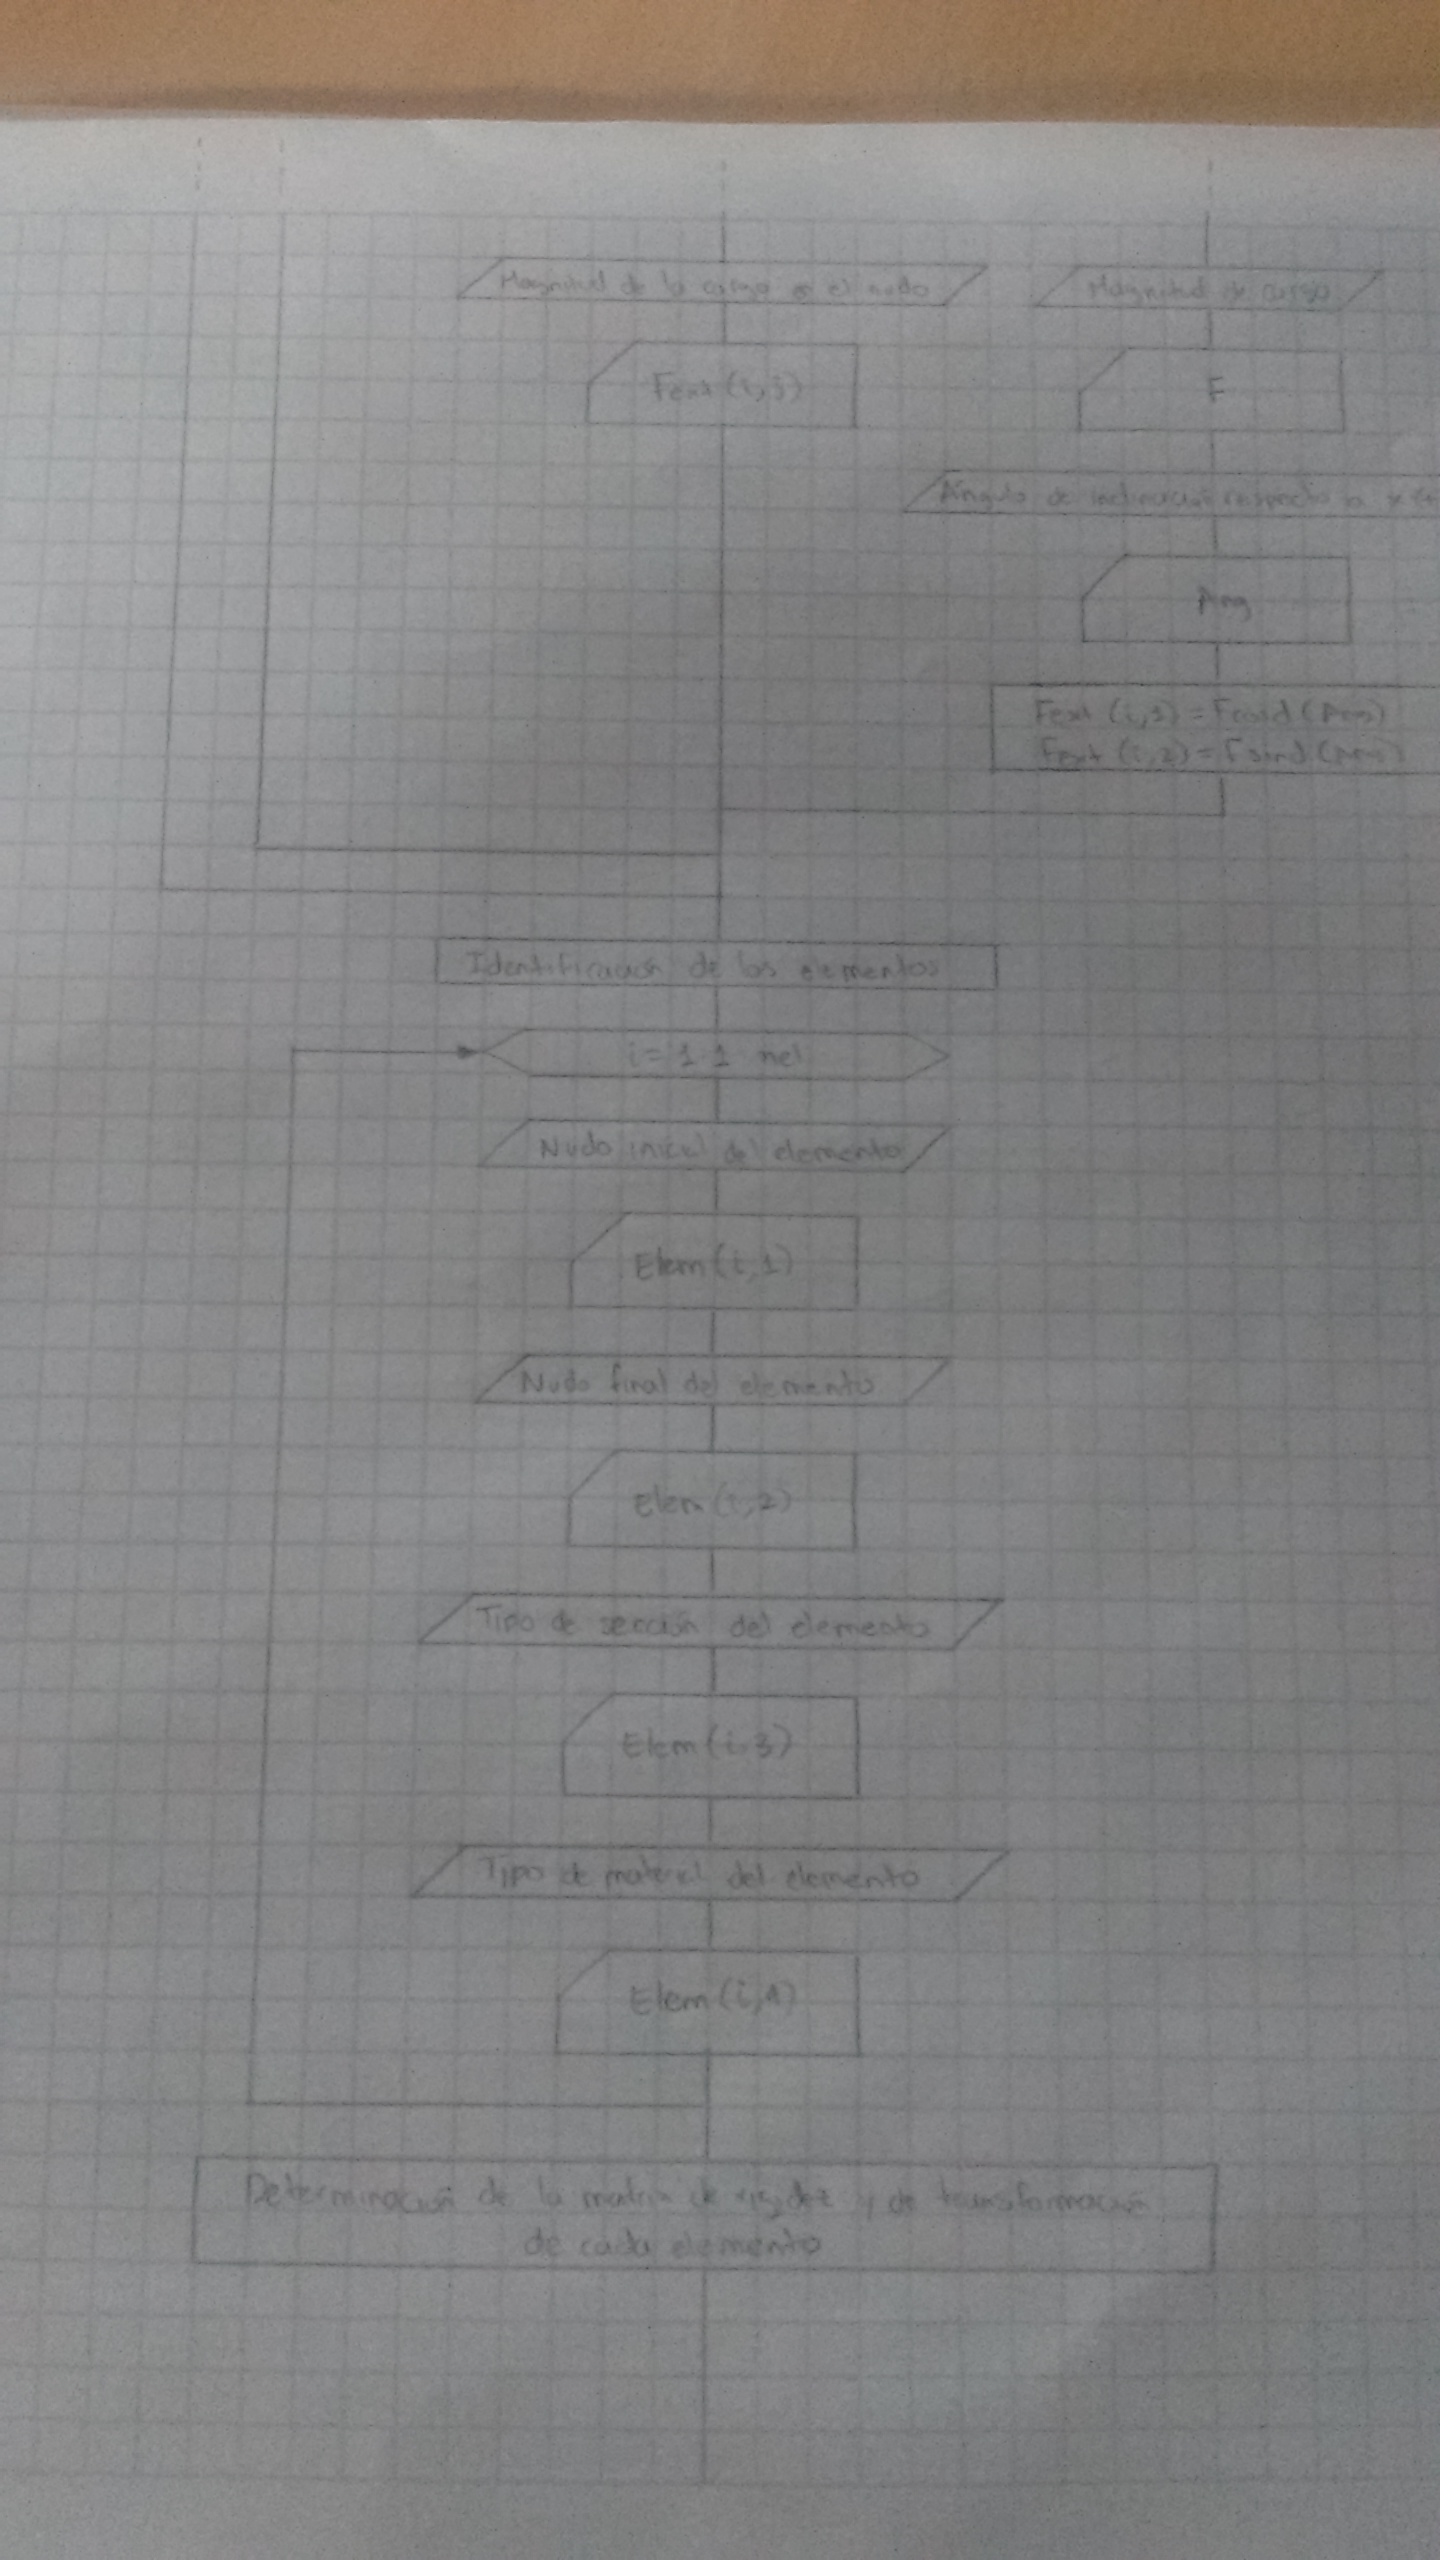 Magnitud de la carga en el nudo
Magnitud de carga
Fext (i,j)
F
Ángulo de inclinación respecto a x
Ang
Fext (i,1) = Fcosd (Ang)
Fext (i,2) = Fsind (Ang)
Identificación de los elementos
i = 1 1 nel
Nudo inicial del elemento
Elem (i,1)
Nudo final del elemento
Elem (i,2)
Tipo de sección del elemento
Elem (i,3)
Tipo de material del elemento
Elem (i,4)
Determinación de la matriz de rigidez y de transformación
de cada elemento